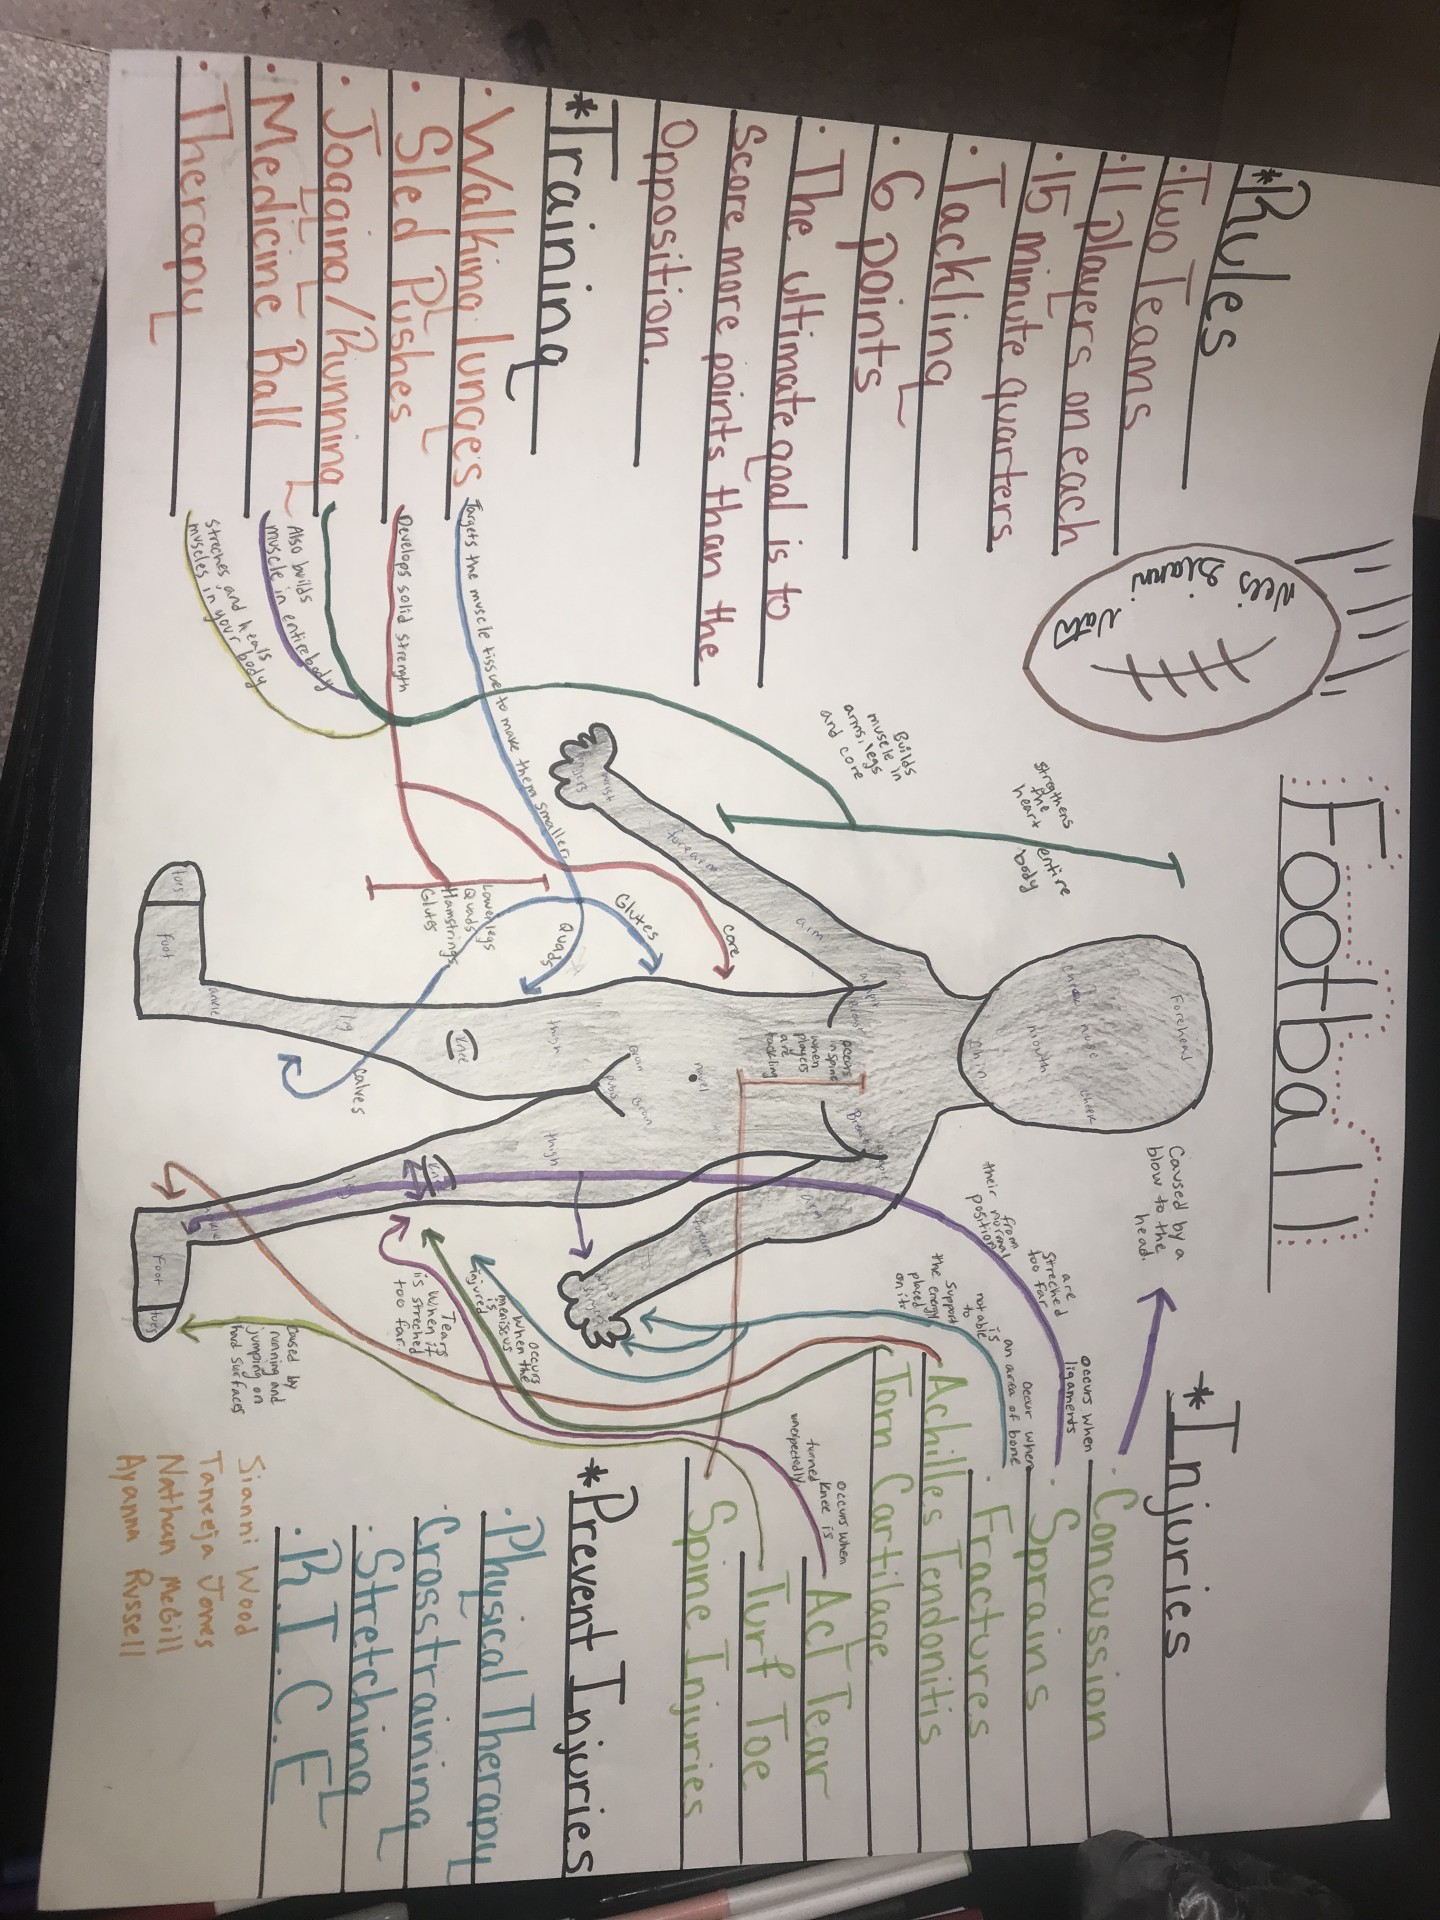 Football
*Rules
·Two Teams
·11 players on each
·15 minute quarters
·Tackling
·6 points
·The ultimate goal is to
score more points than the
Opposition.
*Training
·Walking lunges
·Sled Pushes
·Jogging/Running
·Medicine Ball
·Therapy
Targets the muscle tissue to make them smaller
Develops solid strength
Also builds
muscle in entire body
streches and heals
muscles in your body
Builds
muscle in
arms, legs
and core
strengthens
the
heart
entire
body
core
Glutes
Quads
Lower legs
Quads
Hamstrings
Glutes
calves
Forehead
nose
cheek
mouth
chin
arm
forearm
wrist
fingers
occurs
in spine
when
players
are
tackling
navel
groin
pubis
groin
thigh
thigh
Knee
leg
leg
ankle
ankle
foot
toes
Foot
toes
arm
forearm
*Injuries
·Concussion
·Sprains
·Fractures
Achilles Tendonitis
Torn Cartilage
Acl Tear
Turf Toe
Spine Injuries
Caused by a
blow to the
head.
occurs when
ligaments
are
streched
too far
from
their normal
position
occur when
an area of bone
is
not able
to
support
the energy
placed
on it
occurs when
knee is
turned
unexpectedly
occurs
when the
meniscus
is
injured
Tears
when it
is streched
too far.
caused by
running and
jumping on
hard surfaces
*Prevent Injuries
·Physical Therapy
·Crosstraining
·Stretching
·R.I.C.E
Sianni Wood
Taneeja Jones
Nathan McGill
Ayanna Russell